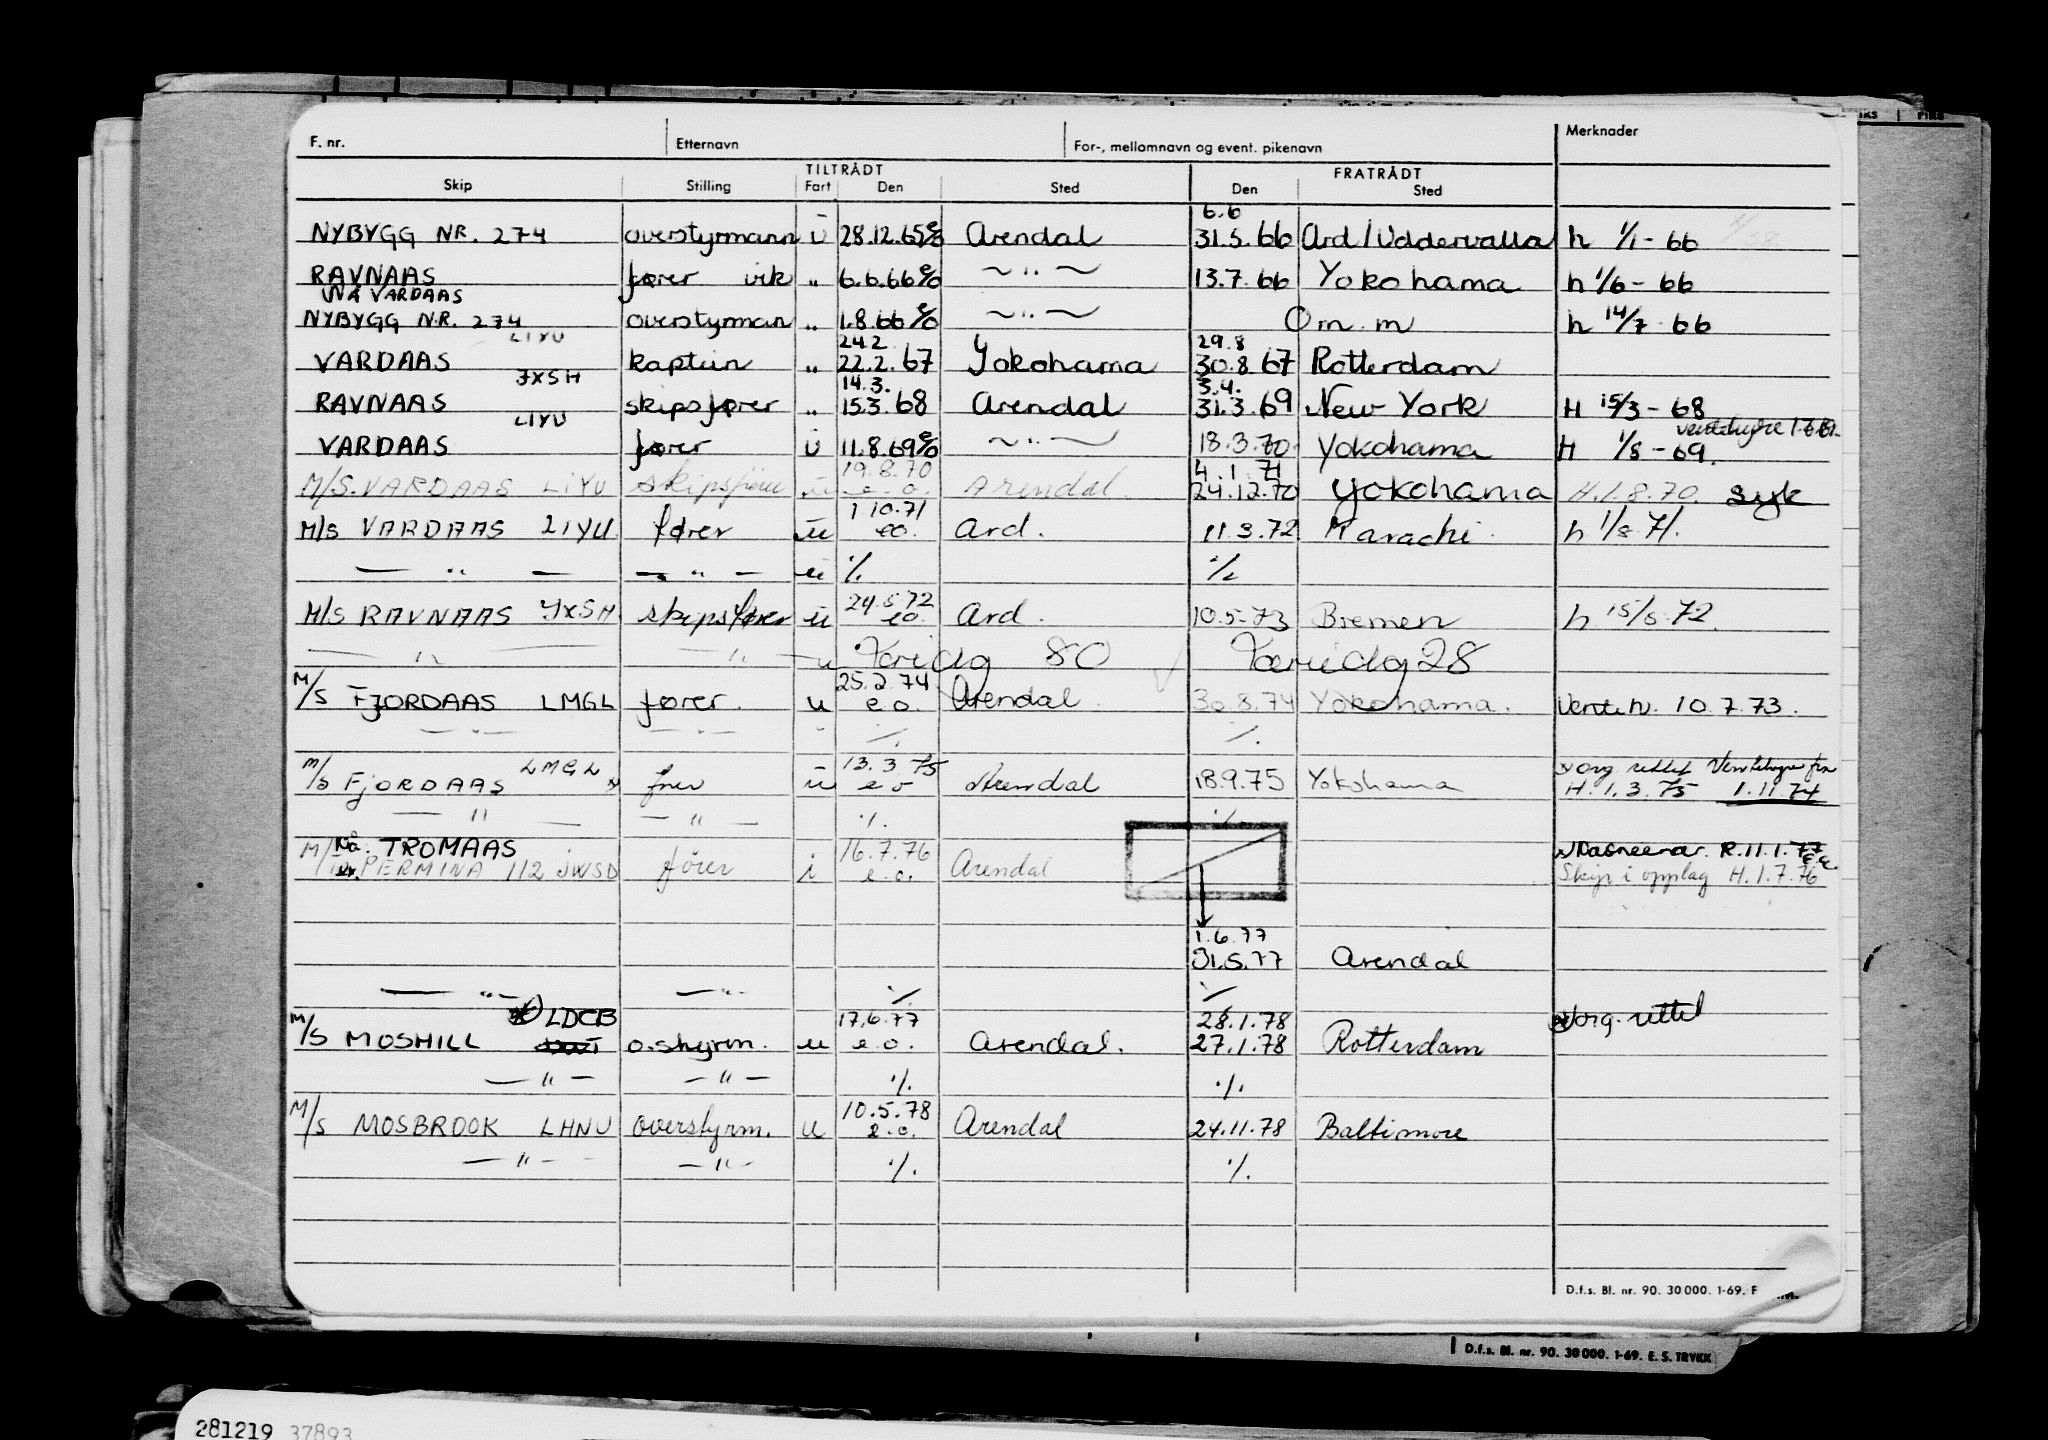 F. nr. Etternavn For-, mellomnavn og event. pikenavn Merknader
TILTRÅDT FRATRÅDT
Skip Stilling Fart Den Sted Den Sted
6.6
NYBYGG NR. 274 overstyrmann ū 28.12.65 Arendal 31.5.66 Ard/Uddervalla h 1/1-66
RAVNAAS fører vik " 6.6.66 e/o ~"~ 13.7.66 Yokohama h 1/6-66
Nå VARDAAS
NYBYGG NR. 274 overstyrman " 1.8.66 e/o ~"~ Om. m h 14/7 66
LIYU 24.2 29.8
VARDAAS kaptein " 22.2.67 Yokohama 30.8.67 Rotterdam
JXSH 14.3. 3.4.
RAVNAAS skipsfører " 15.3.68 Arendal 31.3.69 New York H 15/3-68
LIYU
VARDAAS fører ū 11.8.69 e/o ~"~ 18.3.70 Yokohama H 1/8-69.
19.8.70 4.1.71
M/S. VARDAAS LIYU skipsfører ū e.o. Arendal. 24.12.70 Yokohama H.1.8.70. syk
1 10.71
M/S VARDAAS LIYU fører ū eo. Ard. 11.3.72 Karachi. h 1/8 71.
— " — — " — ū ·/. ·/.
24.5.72
M/S RAVNAAS JXSH. skipsfører ū eo. Ard. 10.5-73 Bremen h 15/5.72.
— " — — " — u 80 28
25.2.74
M/S FJORDAAS LMGL fører. u e.o. Arendal. 30.8.74 Yokohama. Venteh. 10.7.73.
— " — — " — " ·/. ·/.
LMGL 13.3 75 org. rettet Ventehyre fra
M/S FJORDAAS fører ū e o Arendal 18.9.75 Yokohama H.1.3.75 1.11.74
— " — — " — ·/. ·/.
Nå. TROMAAS 16.7.76 R.11.1.77
M/T PERMINA 112 JWSD fører i e.o. Arendal Skip i opplag H.1.7.76
1.6.77
31.5.77 Arendal
— " — — " — ·/. ·/.
LDCB 17.6.77 28.1.78 org. rettet
M/S MOSHILL o.styrm. u e.o. Arendal. 27.1.78 Rotterdam
— " — — " — ·/. ·/.
10.5.78
M/S MOSBROOK LHNU overstyrm. u e.o. Arendal 24.11.78 Baltimore
— " — — " — ·/. ·/.
D.f.s. Bl. nr. 90. 30 000. 1-69.
D.f.s. Bl. nr. 90. 30 000. 1-69. E. S. TRYKK
281219 37893